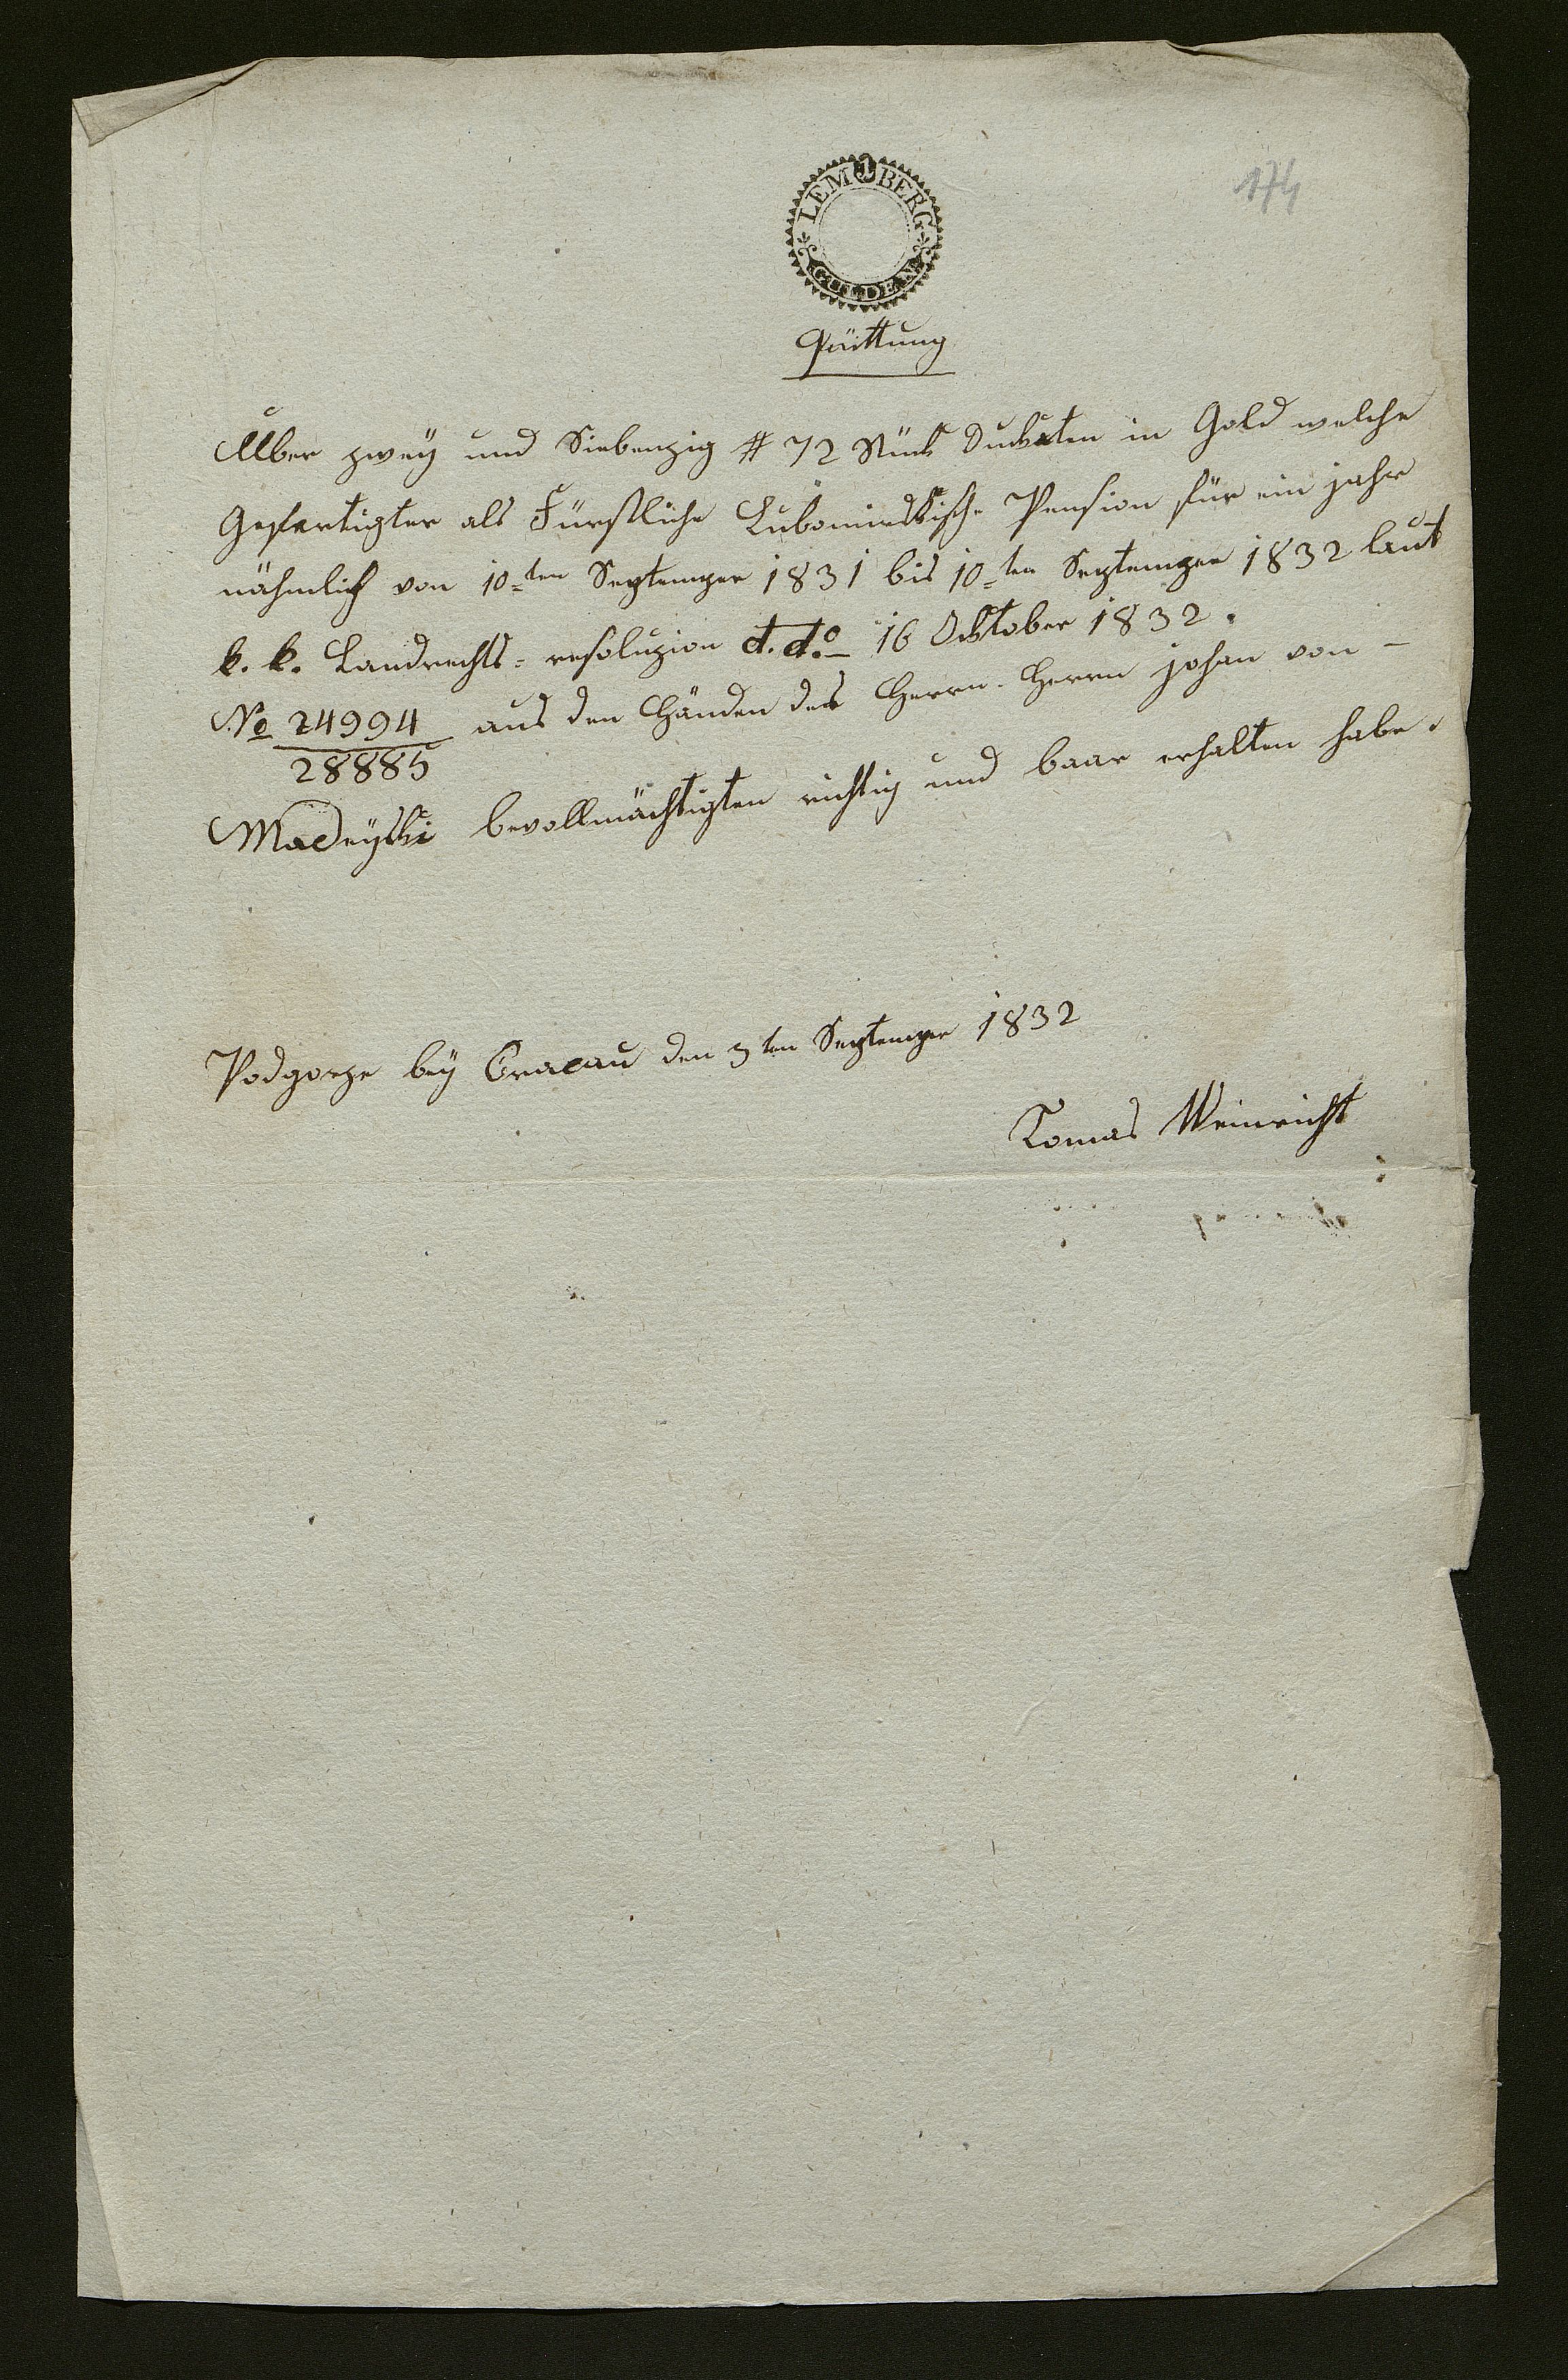 174
LEMBERG
1
GULDEN
Quittung
Über zwey und Siebenzig # 72 Stück Dukaten in Gold welche
Gefertigter als Fürstliche Lubomirskische Pension für ein jahr
nähmlich von 10=ten Septemper 1831 bis 10=ten Septemper 1832 laut
k. k. Landrechts=resoluzion d. do 16 Oktober 1832.
No 24994 aus den Händen des Herrn Herrn johan von –
28885
Madeyski bevollmächtigten richtig und baar erhalten habe.
Podgorze bey Cracau den 3ten Septemper 1832
Tomas Weinricht